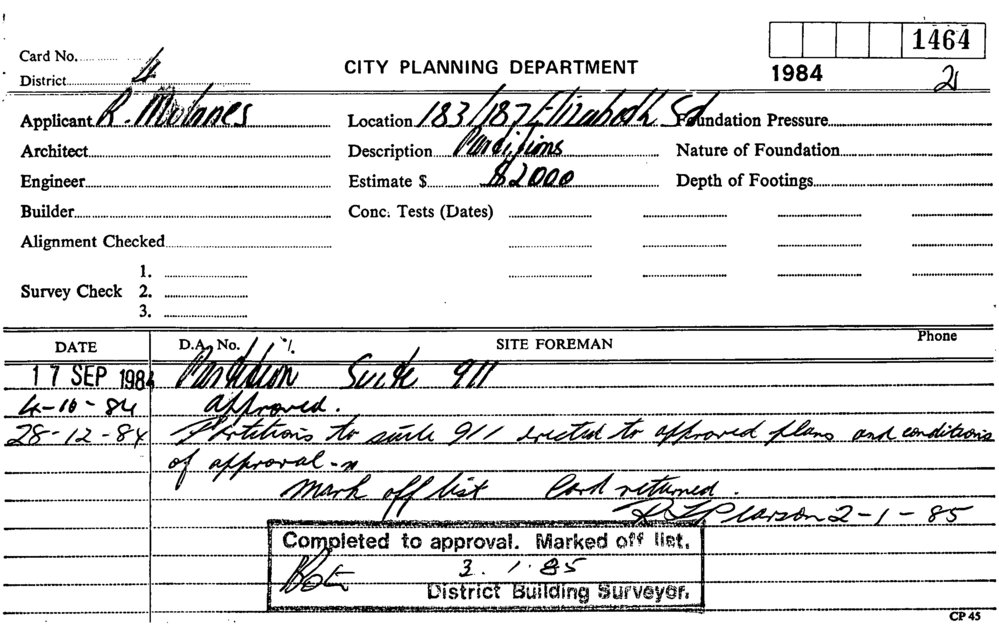 1464
Card No.
CITY PLANNING DEPARTMENT
1984
District 4
21
Applicant R. Location 183/187 Elizabeth St Foundation Pressure
Architect Description Partitions Nature of Foundation
Engineer Estimate $ $2000 Depth of Footings
Builder Conc. Tests (Dates)
Alignment Checked
1.
Survey Check 2.
3.
DATE D.A. No. SITE FOREMAN Phone
17 SEP 1984 Partition Suite 911
4-10-84 approved.
28-12-84 Partitions to suite 911 erected to approved plans and conditions
of approval
Mark off list Card returned.
Pearson 2-1-85
Completed to approval. Marked off list.
3.1.85
District Building Surveyor.
CP 45